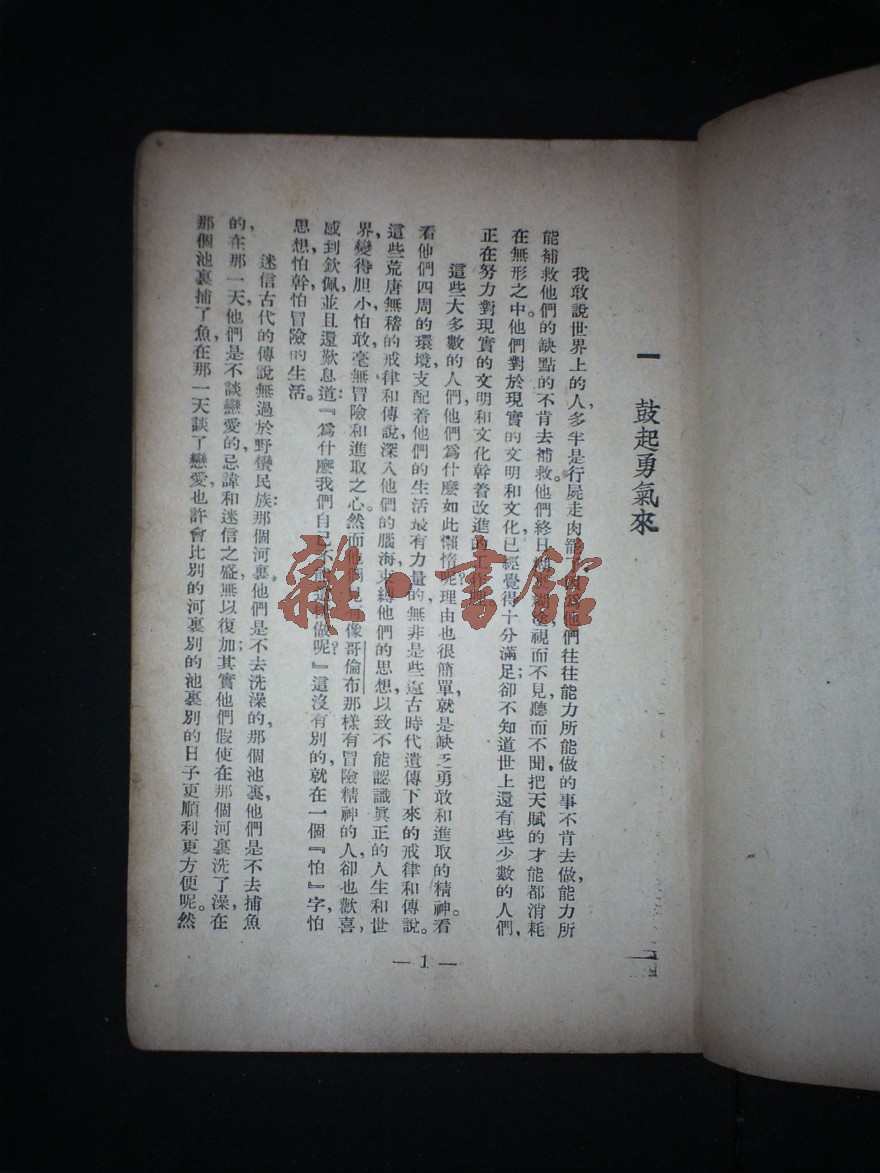 一 鼓起勇氣來
我敢說世界上的人,多半是行屍走肉罷了因爲他們往往能力所能做的事不肯去做,能力所
能補救他們的缺點的不肯去補救。他們終日糊糊塗塗,視而不見,聽而不聞,把天賦的才能都消耗
在無形之中。他們對於現實的文明和文化,已經覺得十分滿足;卻不知道世上還有些少數的人們,
正在努力對現實的文明和文化幹着改進的工作
這些大多數的人們,他們爲什麼如此懶惰呢?理由也很簡單,就是缺乏勇敢和進取的精神。看
看他們四周的環境,支配着他們的生活最有力量的,無非是些遠古時代遺傳下來的戒律和傳說。
這些荒唐無稽的戒律和傳說,深入他們的腦海,束縛他們的思想,以致不能認識眞正的人生和世
界,變得胆小怕敢,毫無冒險和進取之心。然而他們見了像哥倫布那樣有冒險精神的人,卻也歡喜
感到欽佩,並且還歎息道:『爲什麼我們自己不能這樣做呢?』這沒有別的,就在一個『怕』字,怕
思想,怕幹,怕冒險的生活。
迷信古代的傳說,無過於野蠻民族:那個河裏,他們是不去洗澡的,那個池裏,他們是不去捕魚
的,在那一天,他們是不談戀愛的,忌諱和迷信之盛,無以復加;其實他們假使在那個河裏洗了澡,在
那個池裏捕了魚,在那一天談了戀愛,也許會比別的河裏別的池裏別的日子更順利更方便呢。然
— 1 —
雜·書館